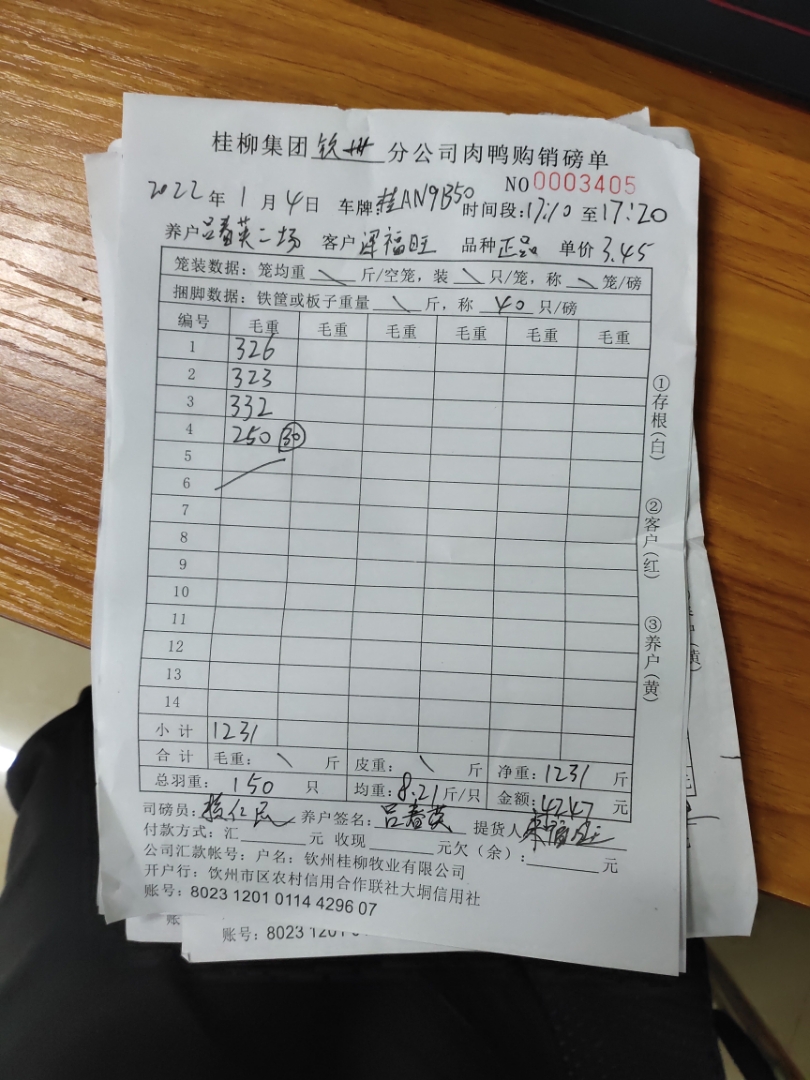 桂柳集团 钦州 分公司肉鸭购销磅单
NO 0003405
2022 年 1 月 4 日 车牌:桂AN9B50 时间段:17:10 至 17:20
养户 吕春英二场 客户 梁福旺 品种 正品 单价 3.45
笼装数据:笼均重 \ 斤/空笼,装 \ 只/笼,称 \ 笼/磅
捆脚数据:铁筐或板子重量 \ 斤,称 40 只/磅
编号 毛重 毛重 毛重 毛重 毛重 毛重
1 326
2 323
3 332
4 250 30
5
6
7
8
9
10
11
12
13
14
小计 1231
合计 毛重: \ 斤 皮重: \ 斤 净重:1231 斤
总羽重: 150 只 均重:8.21 斤/只 金额:4247 元
司磅员: 养户签名:吕春英 提货人
付款方式:汇 元 收现 元欠(余): 元
公司汇款帐号:户名:钦州桂柳牧业有限公司
开户行:饮州市区农村信用合作联社大垌信用社
账号:8023 1201 0114 4296 07
①存根(白)
②客户(红)
③养户(黄)
账号:8023 1201